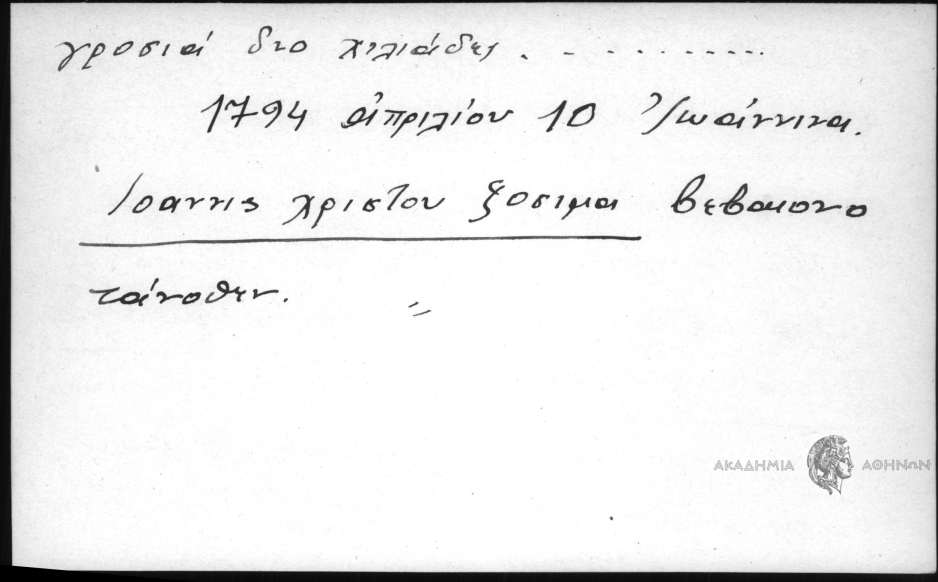 γροσιά διο χιλιάδες . - . . . . . . . . . .
1794 ἀπριλίου 10 Ἰωάννινα.
Ιοαννις χριστου ξοσιμα βεβαιονο
τάνοθεν. 〃
ΑΚΑΔΗΜΙΑ ΑΘΗΝΩΝ